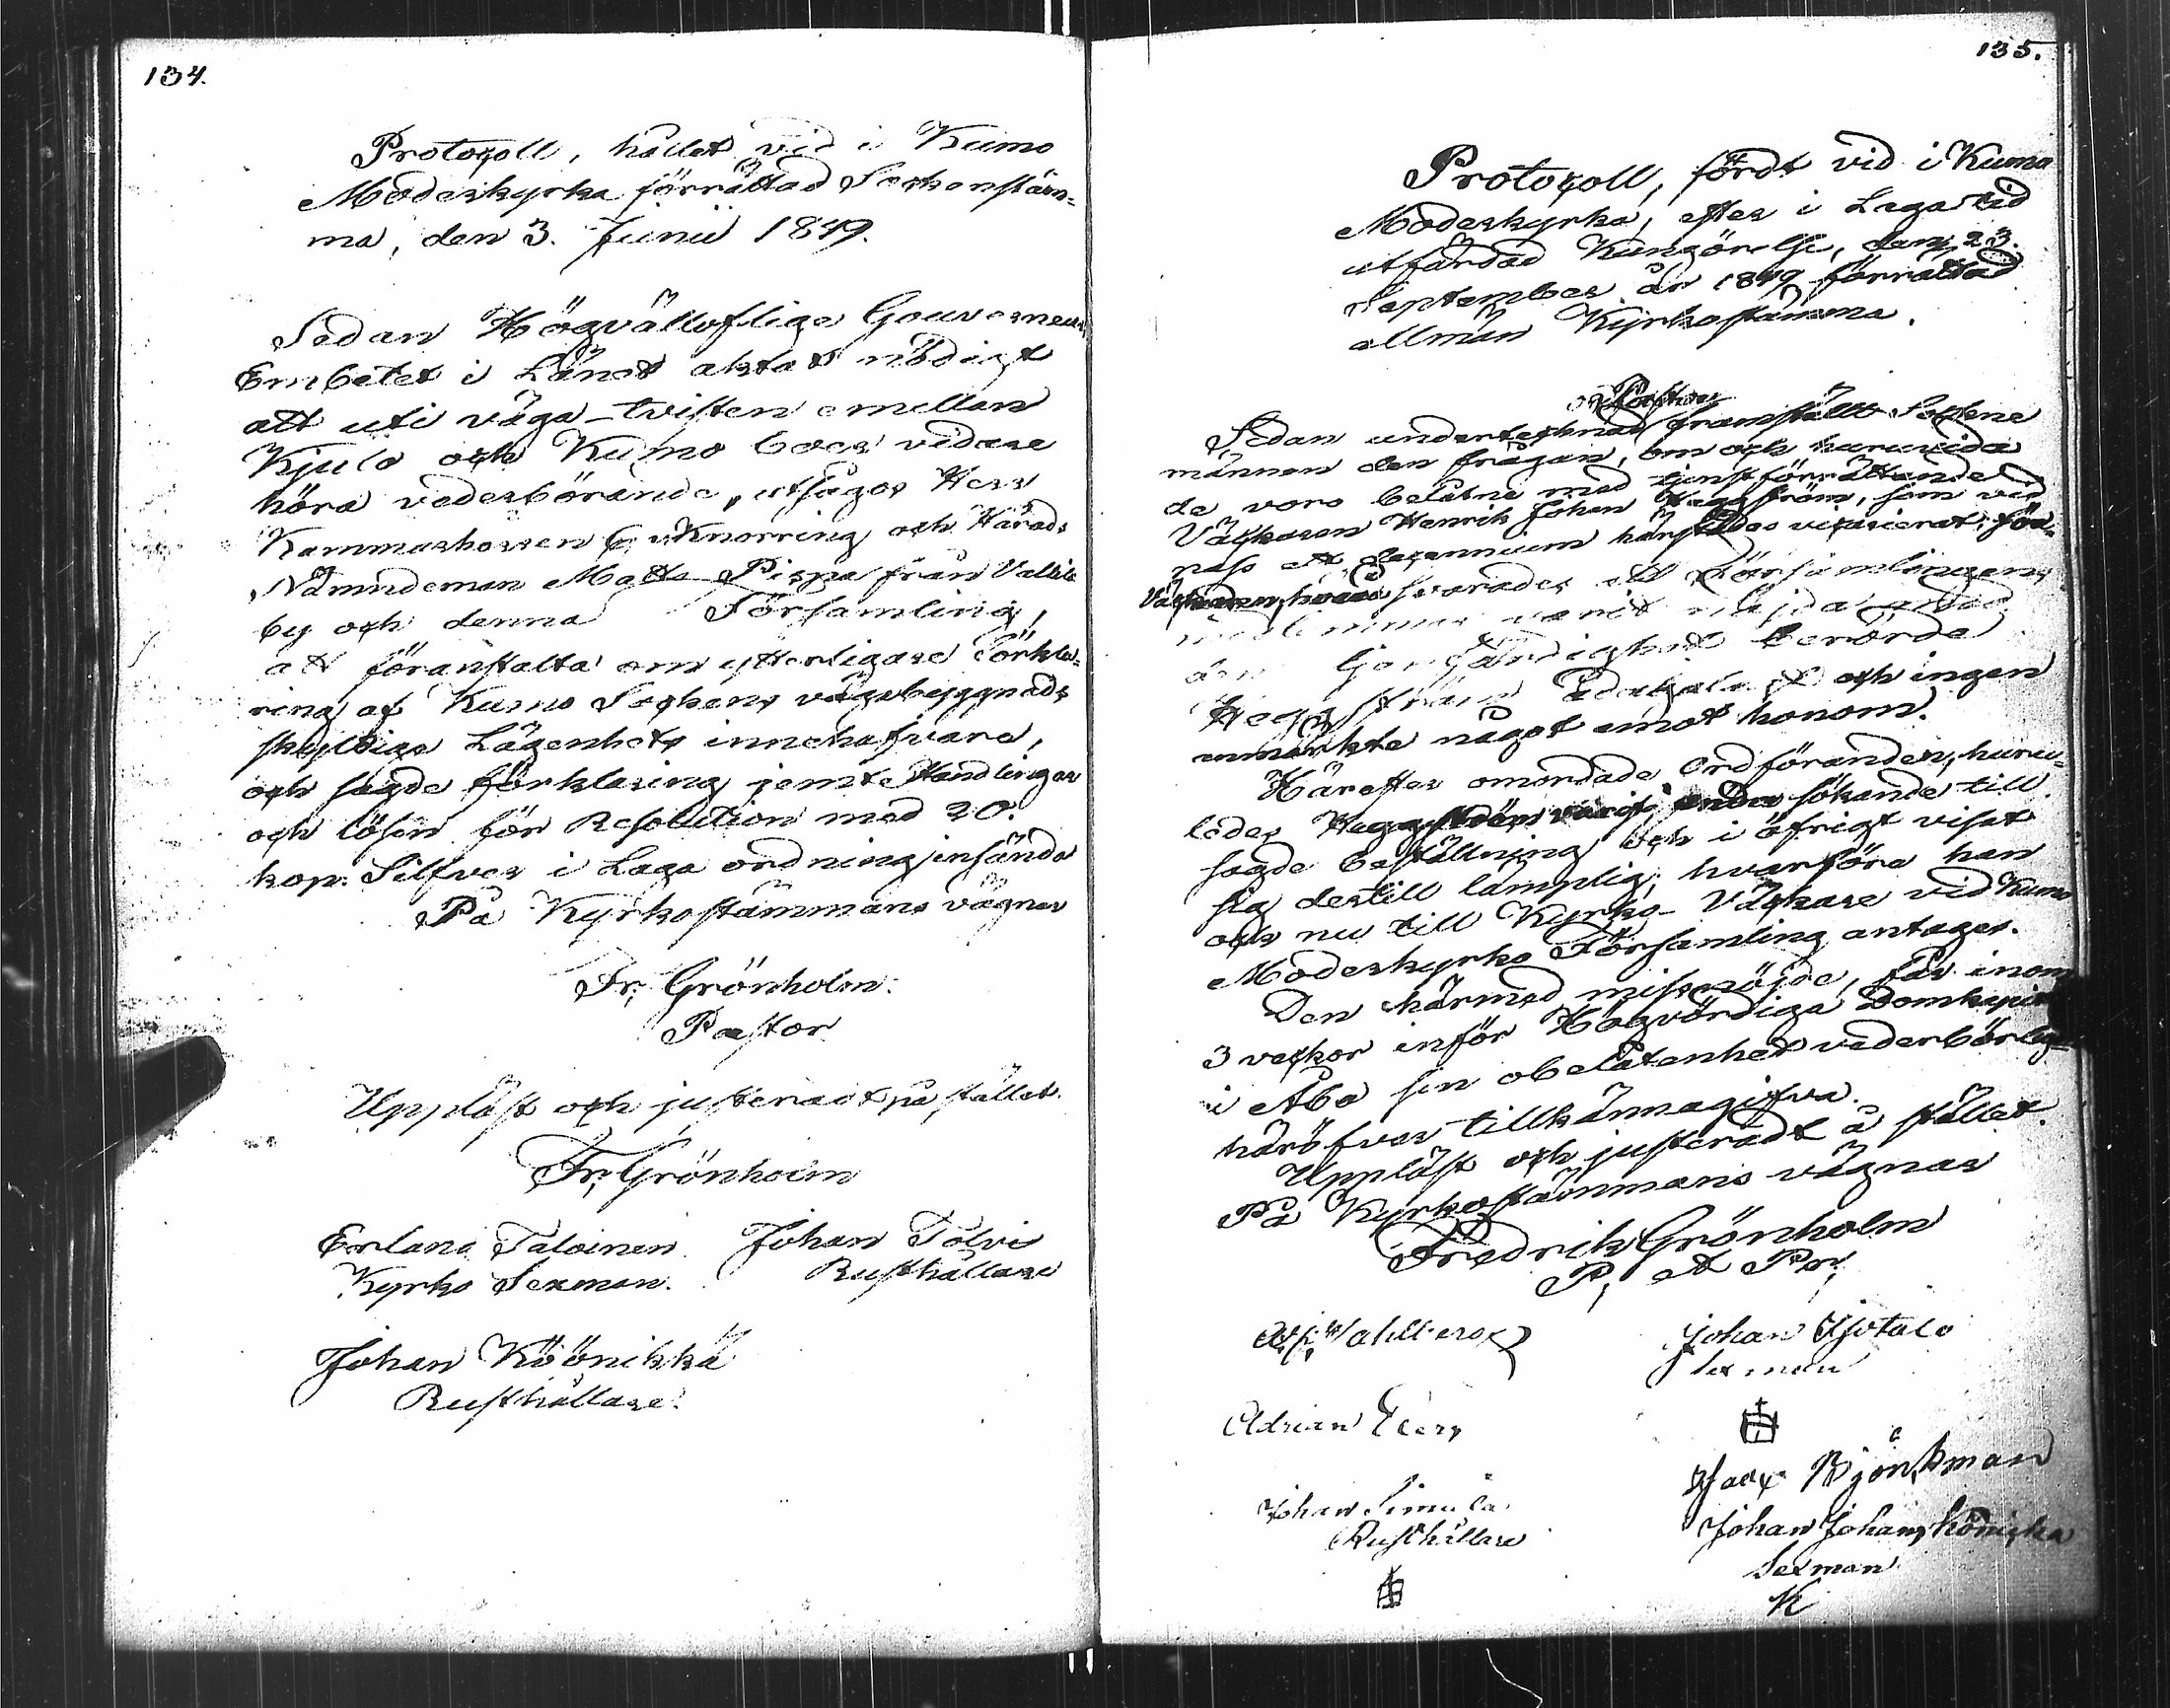 134.
Protocoll, hållet vid i Kumo
Moderkyrka förrättad Sockenstäm-
ma, den 3. Junii 1849.
Sedan Högvälloflige Gouverneurs
Embetet i Länet aktat nödigt
att uti väga-tvisten emellan
Kjulo och Kumo boer vidare
höra vederbörande, utsågos Herr
Kammarherren v. Knorring och Härads
Nämndeman Matts Pispa från Vallila
by och denna Församling,
att föranstalta om ytterligare Förkla-
ring af Kumo Sockens vägabyggnads
skyldige Lägenhets innehafvare,
och sagde förklaring jemte Handlingar
och lösen för Resolution med 20.
kop. Silfver i Laga ordning insända
På Kyrkostämmans vägnar
Fr. Grönholm.
Pastor
Uppläst och justeradt på stället.
Fr. Grönholm
Erland Taloinen Johan Tolvi
Kyrko Sexman. Rusthållare
Johan Köönikkä
Rusthållare.
135.
Protocoll, fördt vid i Kumo
Moderkyrka, efter i Laga tid
utfärdad Kungörelse, den 23.
September år 1849 förrättad
allmän Kyrkostämma.
Pastor
Sedan undertecknad framställt Sockne
männen den frågan, om och huruvida
de voro belåtne med tjenstförrättande
Väckaren Henrik Johan Heggström, som vid
pass ett decennium härstädes vicarierat för
Väckaren, svarades att Församlingens
medlemmar varit nöjda med
den berörde
Heggström ådagalagt och ingen
anmärkte något emot honom.
Härefter omordade Ordföranden, huru-
ledes Heggström varit enda sökande till
sagde beställning och i öfrigt visat
sig dertill lämplig; hvarföre han
ock nu till Kyrko-Väckare vid Kumo
Moderkyrko Församling antages.
Den härmed missnöjde, får inom
3 veckor inför Högvördiga Domkapitlet
i Åbo sin obelåtenhet vederbörligen
häröfver tillkännagifva.
Uppläst och justeradt å stället.
På Kyrkostämmans vägnar
Fredrik Grönholm
P. et Pr.
Wahlberg Johan
Sexman
Adrian
Björkman
Johan Simula Johan Johans Könickä
Rusthållare Sexman
K